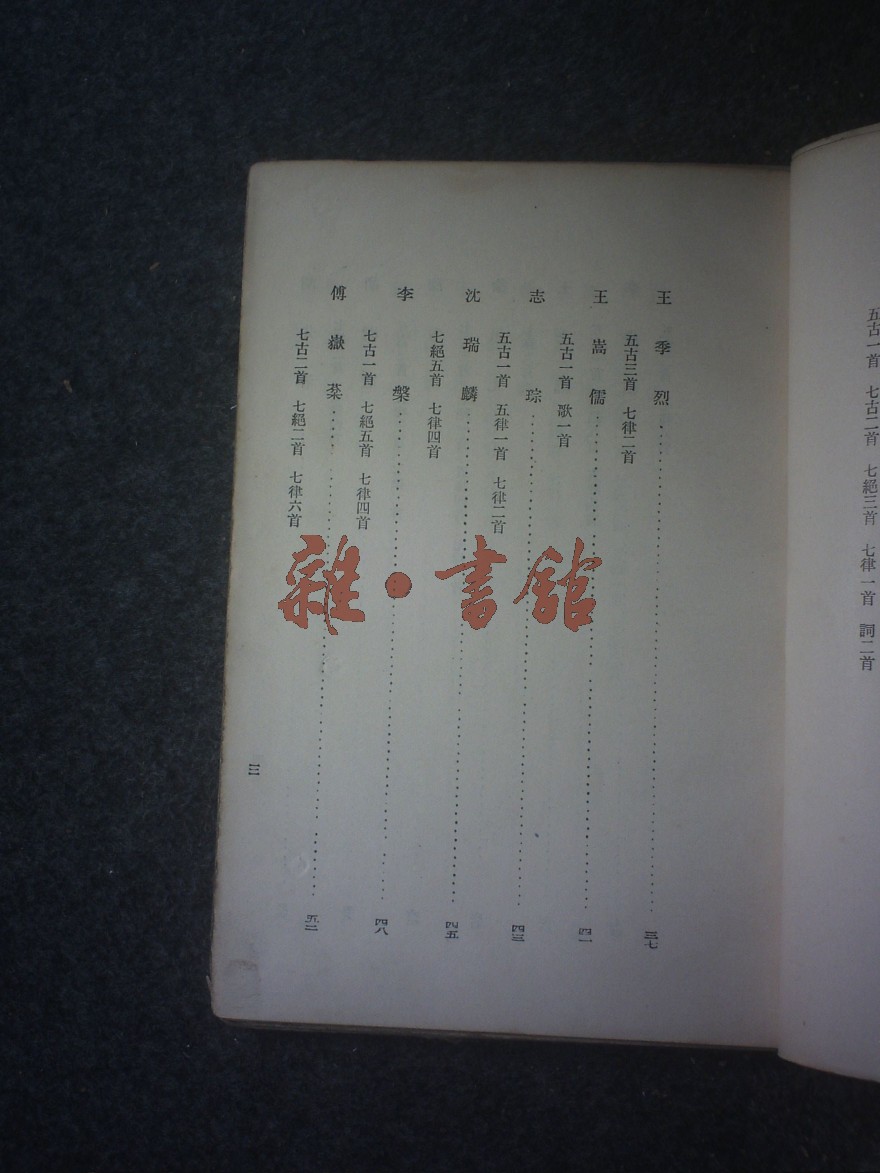 五古一首 七古二首 七絕三首 七律一首 詞二首
王季烈 三七
五古三首 七律二首
王嵩儒 四一
五古一首 歌一首
志琮 四三
五古一首 五律一首 七律二首
沈瑞麟 四五
七絕五首 七律四首
李槃 四八
七古一首 七絕五首 七律四首
傅嶽棻 五二
七古二首 七絕二首 七律六首
三
雜·書館